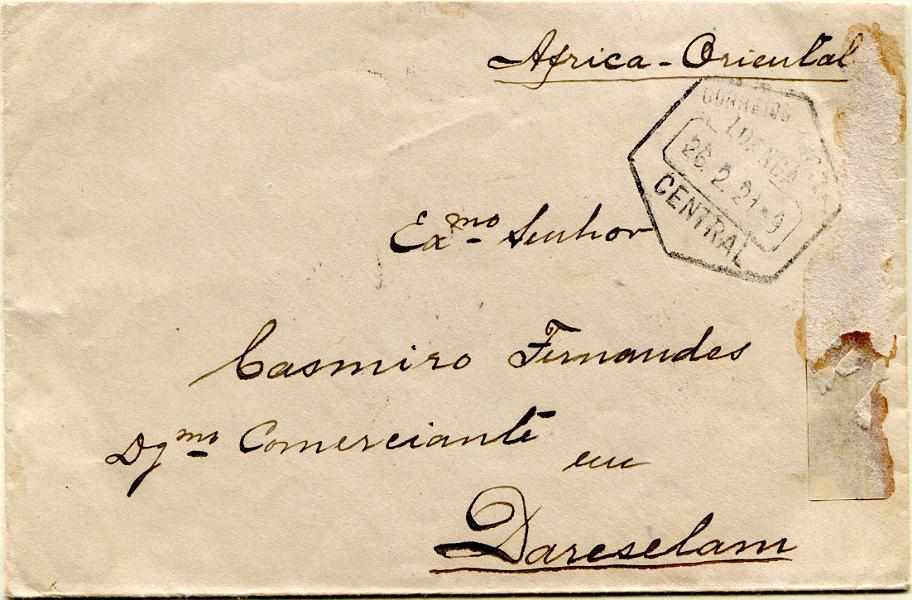 Africa - Oriental
CORREIOS
LOANDA
26.2.21-9
CENTRAL
Exmo Senhor
Casmiro Fernandes
Dgmo Comerciante
em
Dareselam